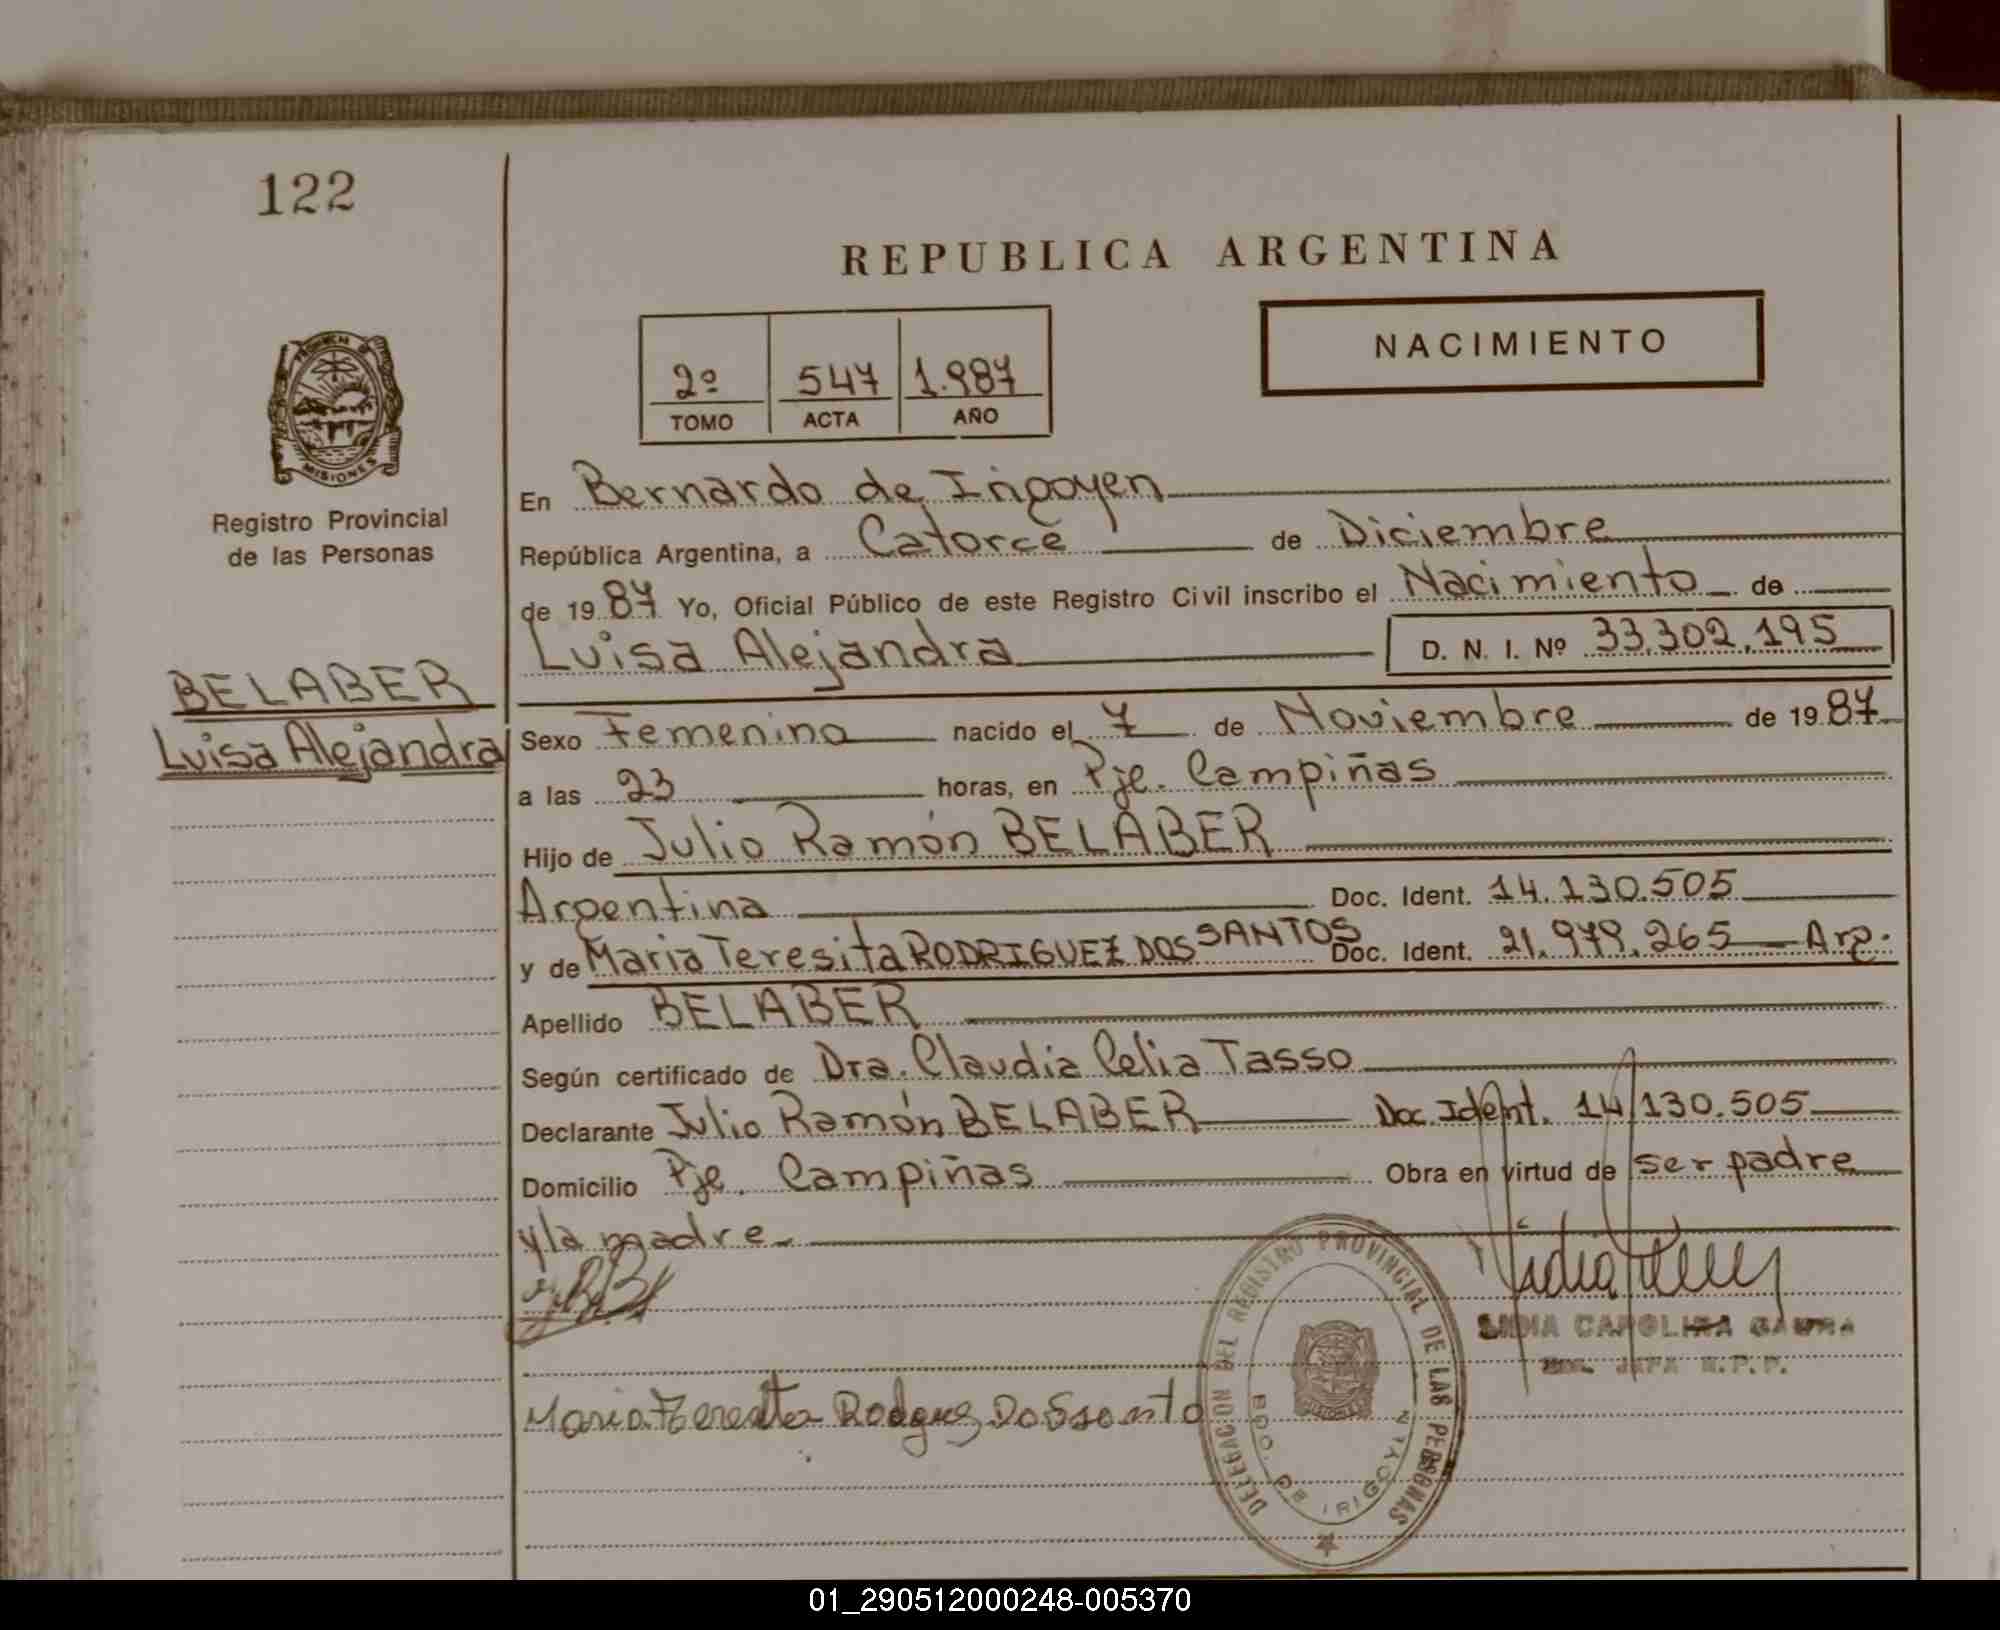 122
REPUBLICA ARGENTINA
NACIMIENTO
2º 547 1.987
TOMO ACTA AÑO
PROVINCIA DE
MISIONES
Registro Provincial
de las Personas
BELABER
Luisa Alejandra
En Bernardo de Irigoyen
República Argentina, a Catorce de Diciembre
de 19 87 Yo, Oficial Público de este Registro Civil inscribo el Nacimiento de
Luisa Alejandra D. N. I. Nº 33.302.195
Sexo Femenino nacido el 7 de Noviembre de 19 87
a las 23 horas, en Pje. Campiñas
Hijo de Julio Ramón BELABER
Argentina Doc. Ident. 14.130.505
y de Maria Teresita RODRIGUEZ DOS SANTOS Doc. Ident. 21.979.265 Arg.
Apellido BELABER
Según certificado de Dra. Claudia Celia Tasso
Declarante Julio Ramón BELABER Doc. Ident. 14.130.505
Domicilio Pje. Campiñas Obra en virtud de ser padre
y la madre.
CAROLINA
JEFA R.P.P.
Maria Teresita
DELEGACION DEL REGISTRO PROVINCIAL DE LAS PERSONAS
BDO. DE IRIGOYEN
01_290512000248-005370